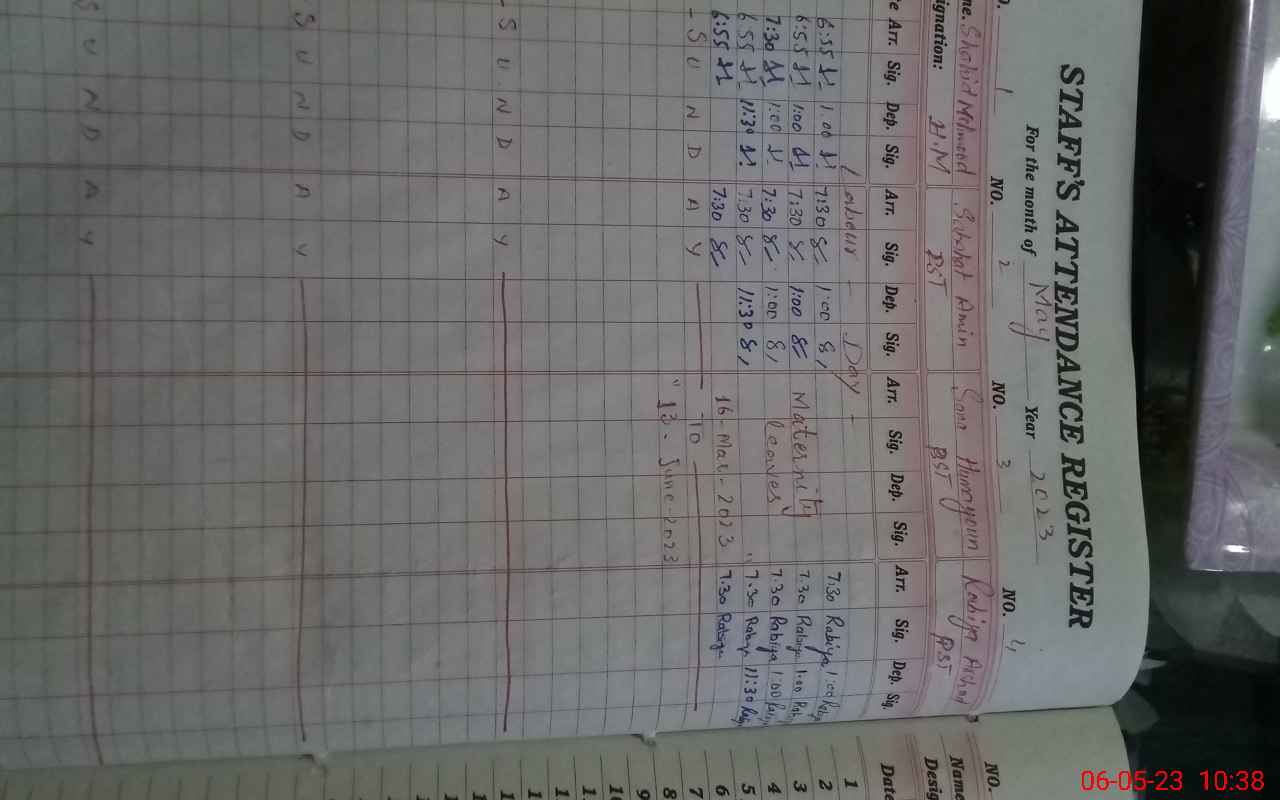 STAFF'S ATTENDANCE REGISTER
For the month of May Year 2023
NO. 1 NO. 2 NO. 3 NO. 4
me. Shahid Mehmood Sabahat Amin Sana Humayoun Rabiya Arshad
ignation: H.M PST PST PST
e Arr. Sig. Dep. Sig. Arr. Sig. Dep. Sig. Arr. Sig. Dep. Sig. Arr. Sig. Dep. Sig.
Labour - Day -
6:55 1:00 7:30 1:00 7:30 Rabiya 1:00
6:55 1:00 7:30 1:00 Maternity 7:30 Rabiya 1:00
7:30 1:00 7:30 1:00 leaves 7:30 Rabiya 1:00
6:55 11:30 7:30 11:30 " 7:30 Rabiya 11:30
6:55 7:30 16-Mar-2023 7:30 Rabiya
- S U N D A Y TO
" 13-June-2023
- S U N D A Y
S U N D A Y
S U N D A Y
NO.
Name
Desig
Date
1
2
3
4
5
6
7
8
9
06-05-23 10:38